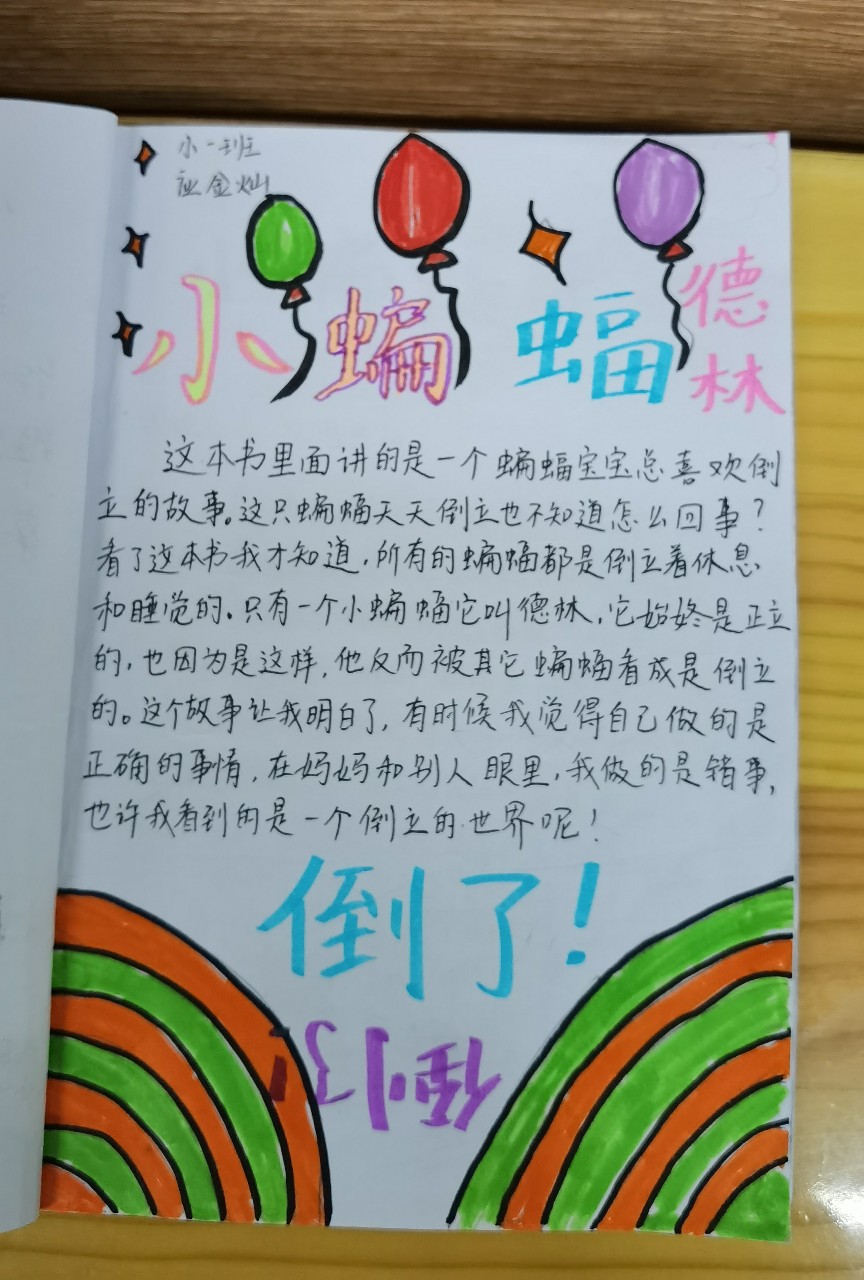 小一班
应金灿
小蝙蝠德林
这本书里面讲的是一个蝙蝠宝宝总喜欢倒
立的故事。这只蝙蝠天天倒立也不知道怎么回事?
看了这本书我才知道,所有的蝙蝠都是倒立着休息
和睡觉的。只有一个小蝙蝠它叫德林,它始终是正立
的,也因为是这样,他反而被其它蝙蝠看成是倒立
的。这个故事让我明白了,有时候我觉得自己做的是
正确的事情,在妈妈和别人眼里,我做的是错事,
也许我看到的是一个倒立的世界呢!
倒了!
倒了!